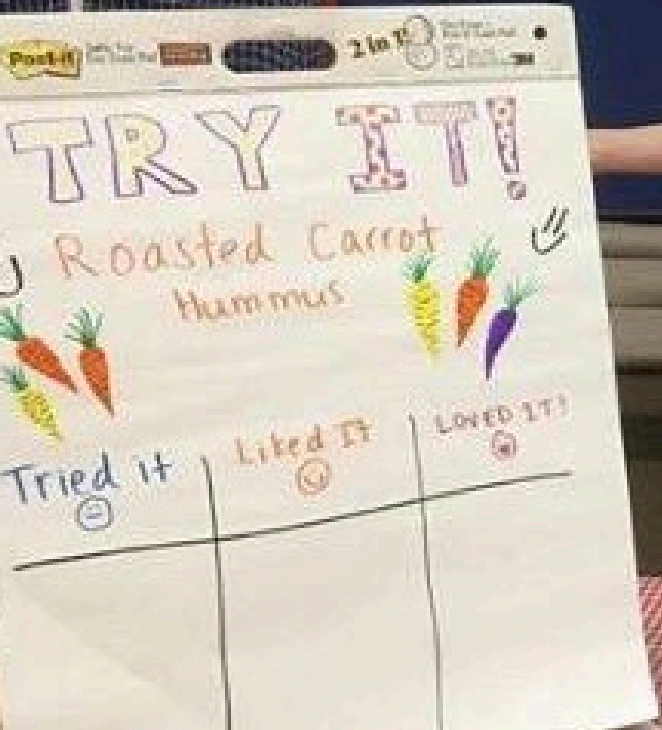 Post-it
2 in 1!
3M
TRY IT!
Roasted Carrot
Hummus
Tried it
Liked It
LOVED IT!